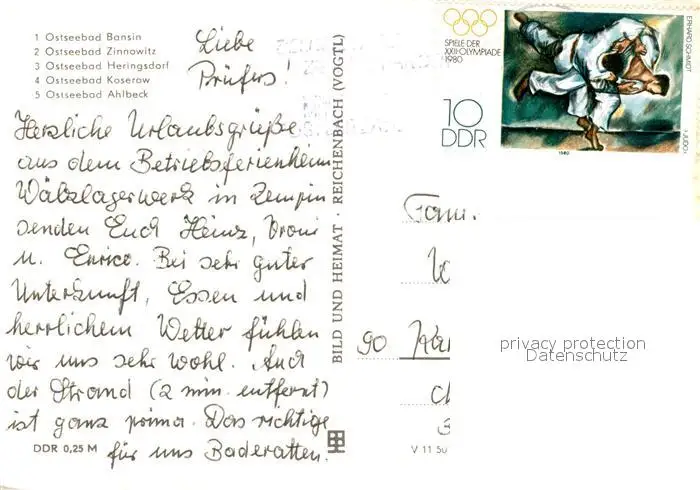 1 Ostseebad Bansin
2 Ostseebad Zinnowitz
3 Ostseebad Heringsdorf
4 Ostseebad Koserow
5 Ostseebad Ahlbeck
Liebe
Prüfers!
Herzliche Urlaubsgrüße
aus dem Betriebsferienheim
Wälzlagerwerk in Zempin
senden Euch Heinz, Vroni
u. Enrico. Bei sehr guter
Unterkunft, Essen und
herrlichem Wetter fühlen
wir uns sehr wohl. Auch
der Strand (2 min. entfernt)
ist ganz prima. Das richtige
für uns Baderatten.
DDR 0,25 M
BILD UND HEIMAT · REICHENBACH (VOGTL)
SPIELE DER
XXII. OLYMPIADE
1980
10
DDR
ERHARD SCHMIDT
JUDO
1980
Fam.
90
privacy protection
Datenschutz
V 11 50